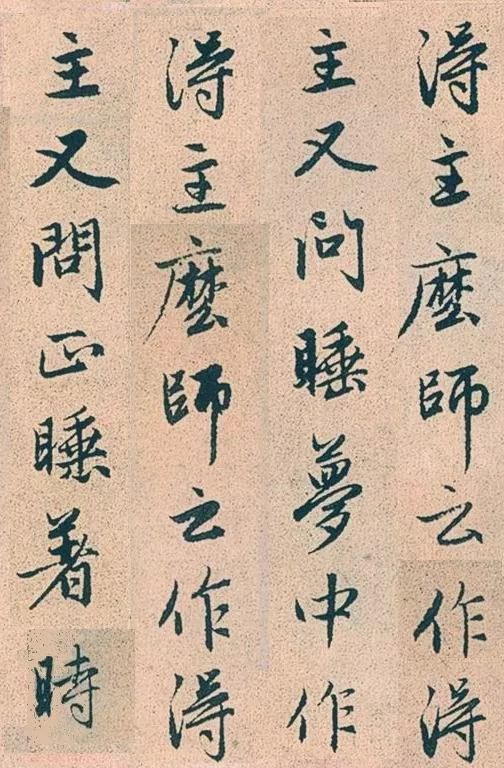 得主麼師云作得
主又問睡夢中作
得主麼師云作得
主又問正睡著時